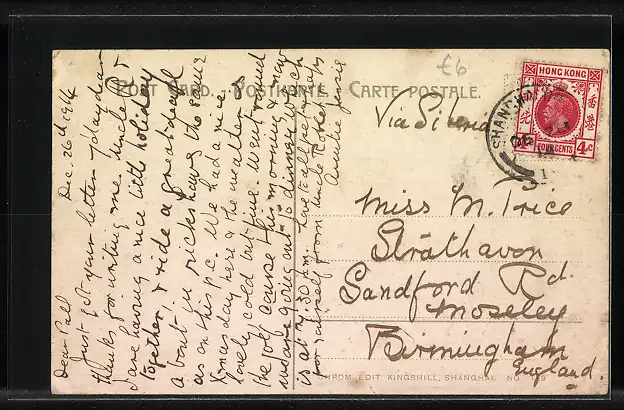 POST CARD. - POSTKARTE. - CARTE POSTALE.
£6
Via Siberia
HONG KONG
FOUR CENTS
4c
SHANGHAI
Miss M. Price
Strathavon
Sandford Rd
Moseley
Birmingham
England.
Dec. 26th 1914
Dear all
Just got your letter,
thanks for writing me. Uncle R &
I are having a nice little holiday
together, & ride a great deal
about in rickshaws the same
as on this p.c. We had a nice
Xmas day here & the weather is
lovely cold but fine. Went round
the golf course this morning &
are going out to dinner which
is at 7.30 p.m. Love to all
for yourself from Uncle &
Auntie Josie
CHROM EDIT KINGSHILL, SHANGHAI. NO